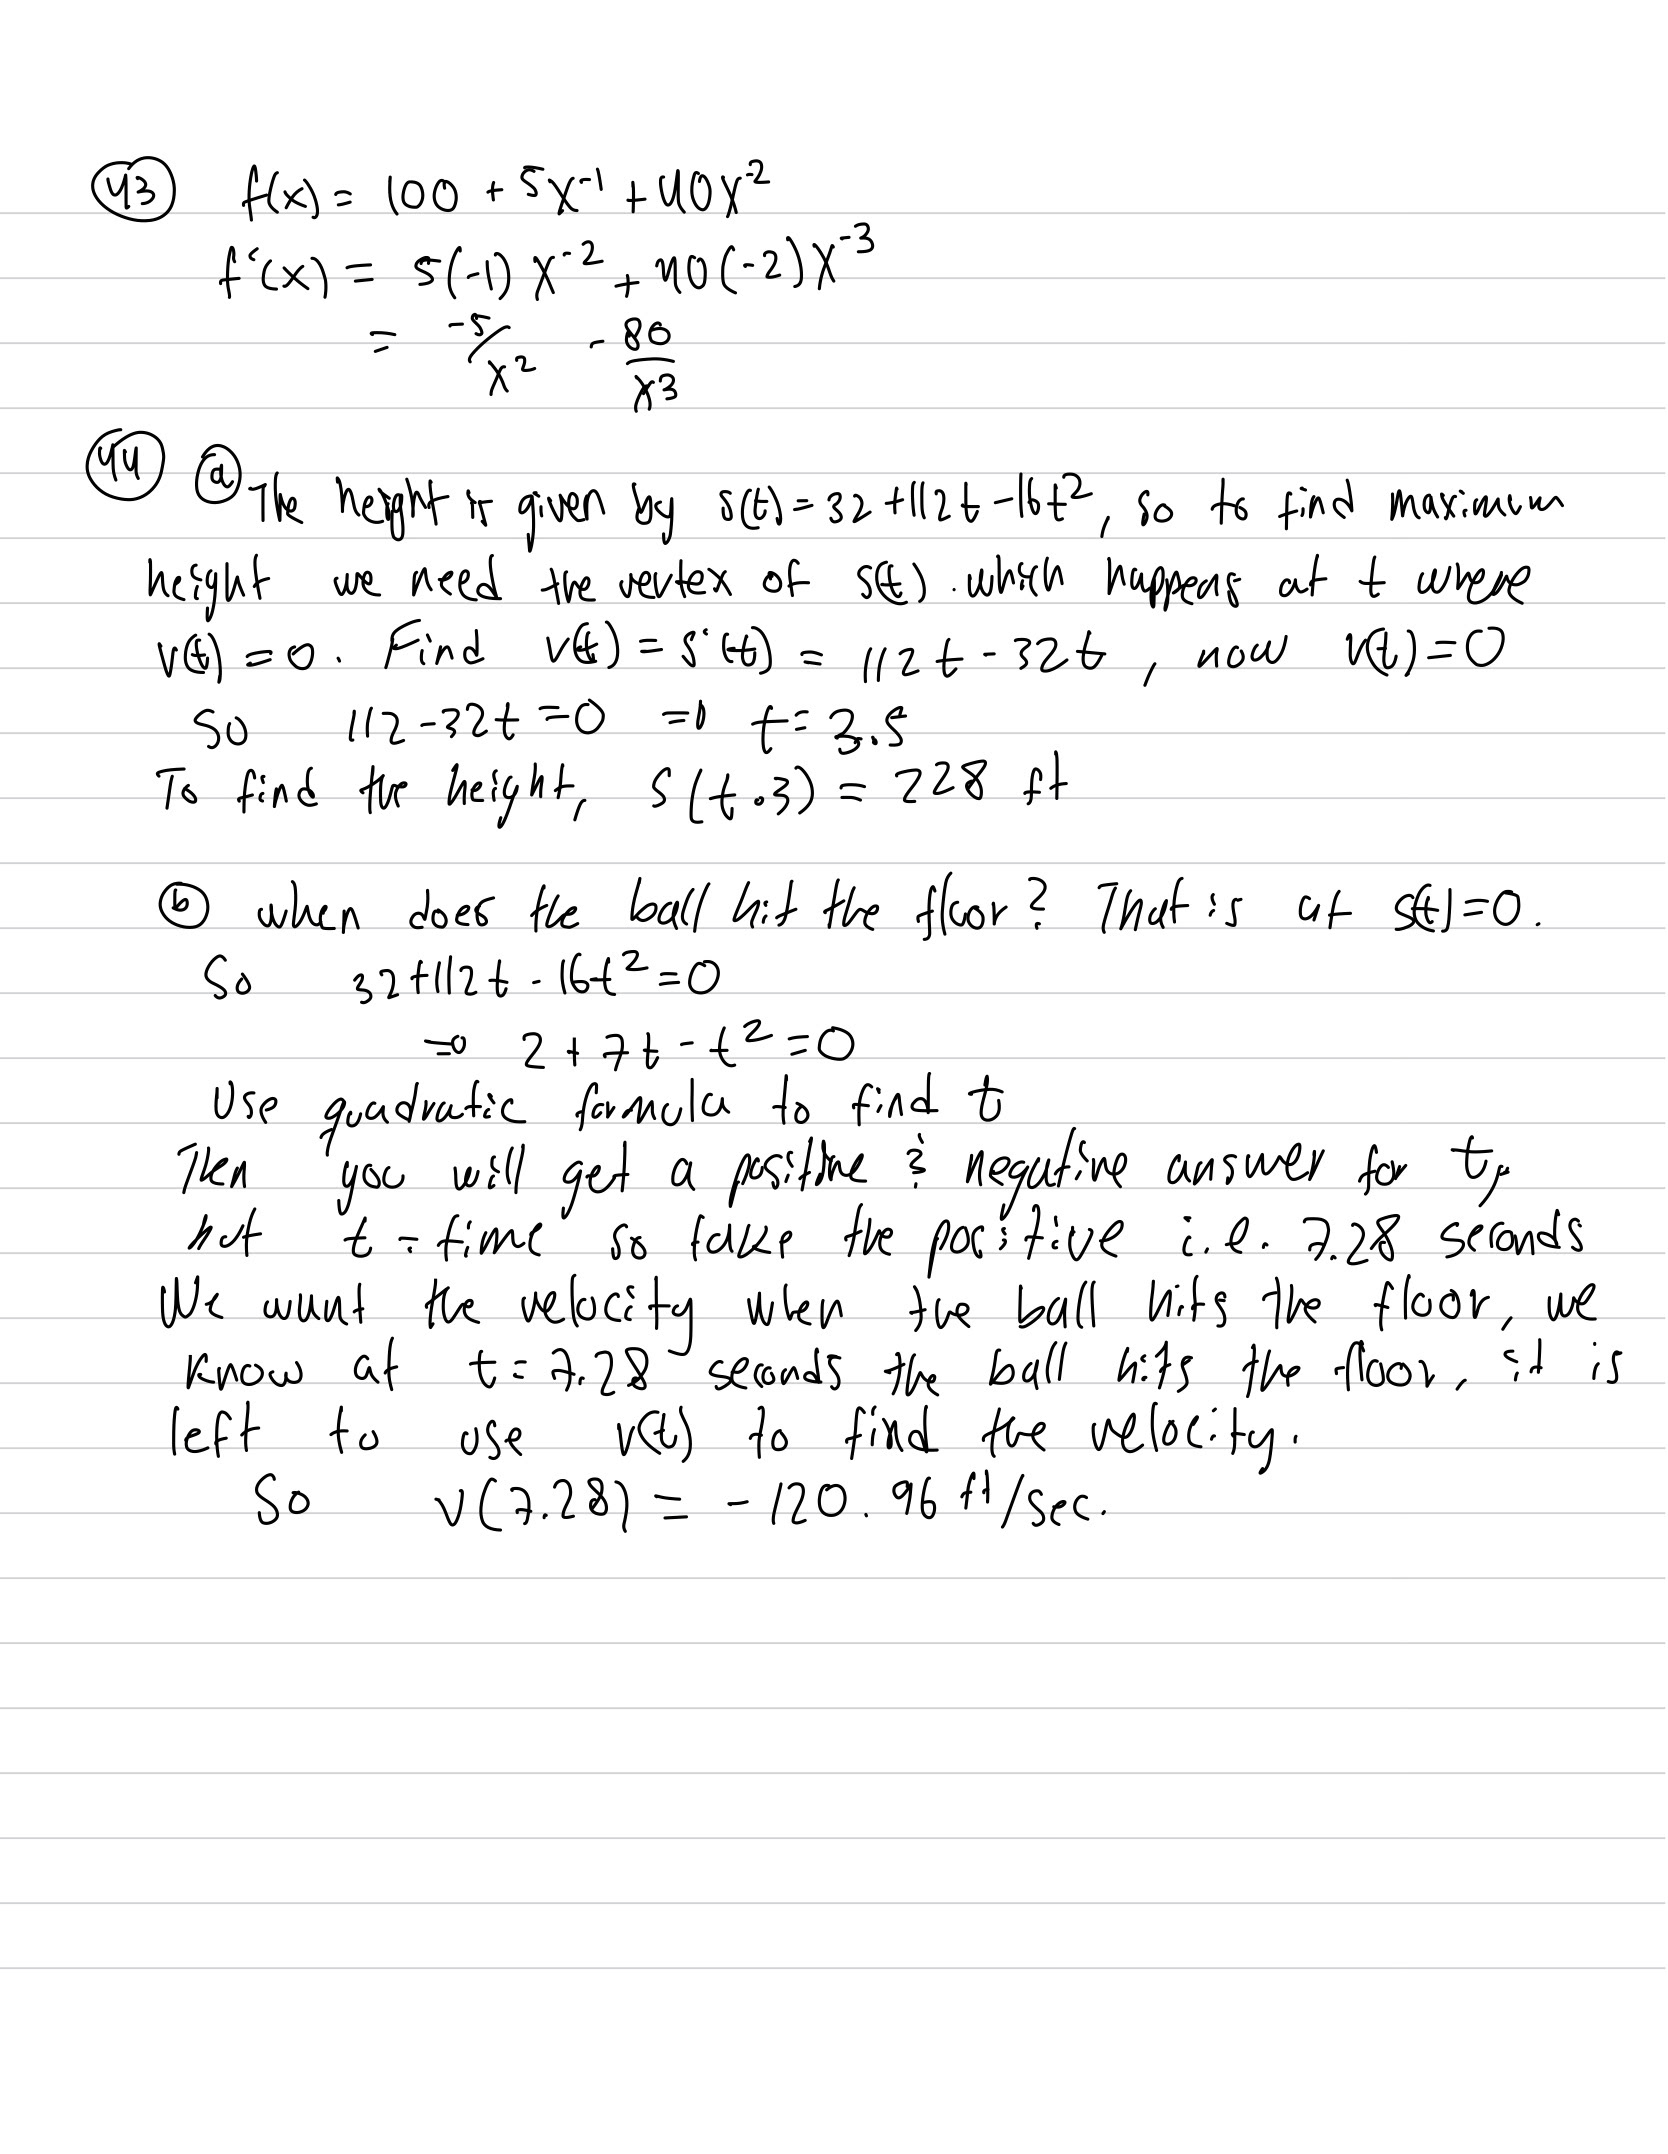 43 f(x) = 100 + 5x⁻¹ + 40x⁻²
f'(x) = 5(-1) x⁻² + 40(-2)x⁻³
= -5/x² - 80/x³
44 a The height is given by s(t) = 32 + 112t - 16t², so to find maximum
height we need the vertex of s(t). which happens at t where
v(t) = 0. Find v(t) = s'(t) = 112t - 32t, now v(t) = 0
So 112 - 32t = 0 ⇒ t = 3.5
To find the height, s(t.3) = 228 ft
b when does the ball hit the floor? That is at s(t) = 0.
So 32 + 112t - 16t² = 0
⇒ 2 + 7t - t² = 0
Use quadratic formula to find t
Then you will get a positive & negative answer for t,
but t = time so take the positive i.e. 7.28 seconds
We want the velocity when the ball hits the floor, we
know at t = 7.28 seconds the ball hits the floor, it is
left to use v(t) to find the velocity.
So v(7.28) = -120.96 ft/sec.